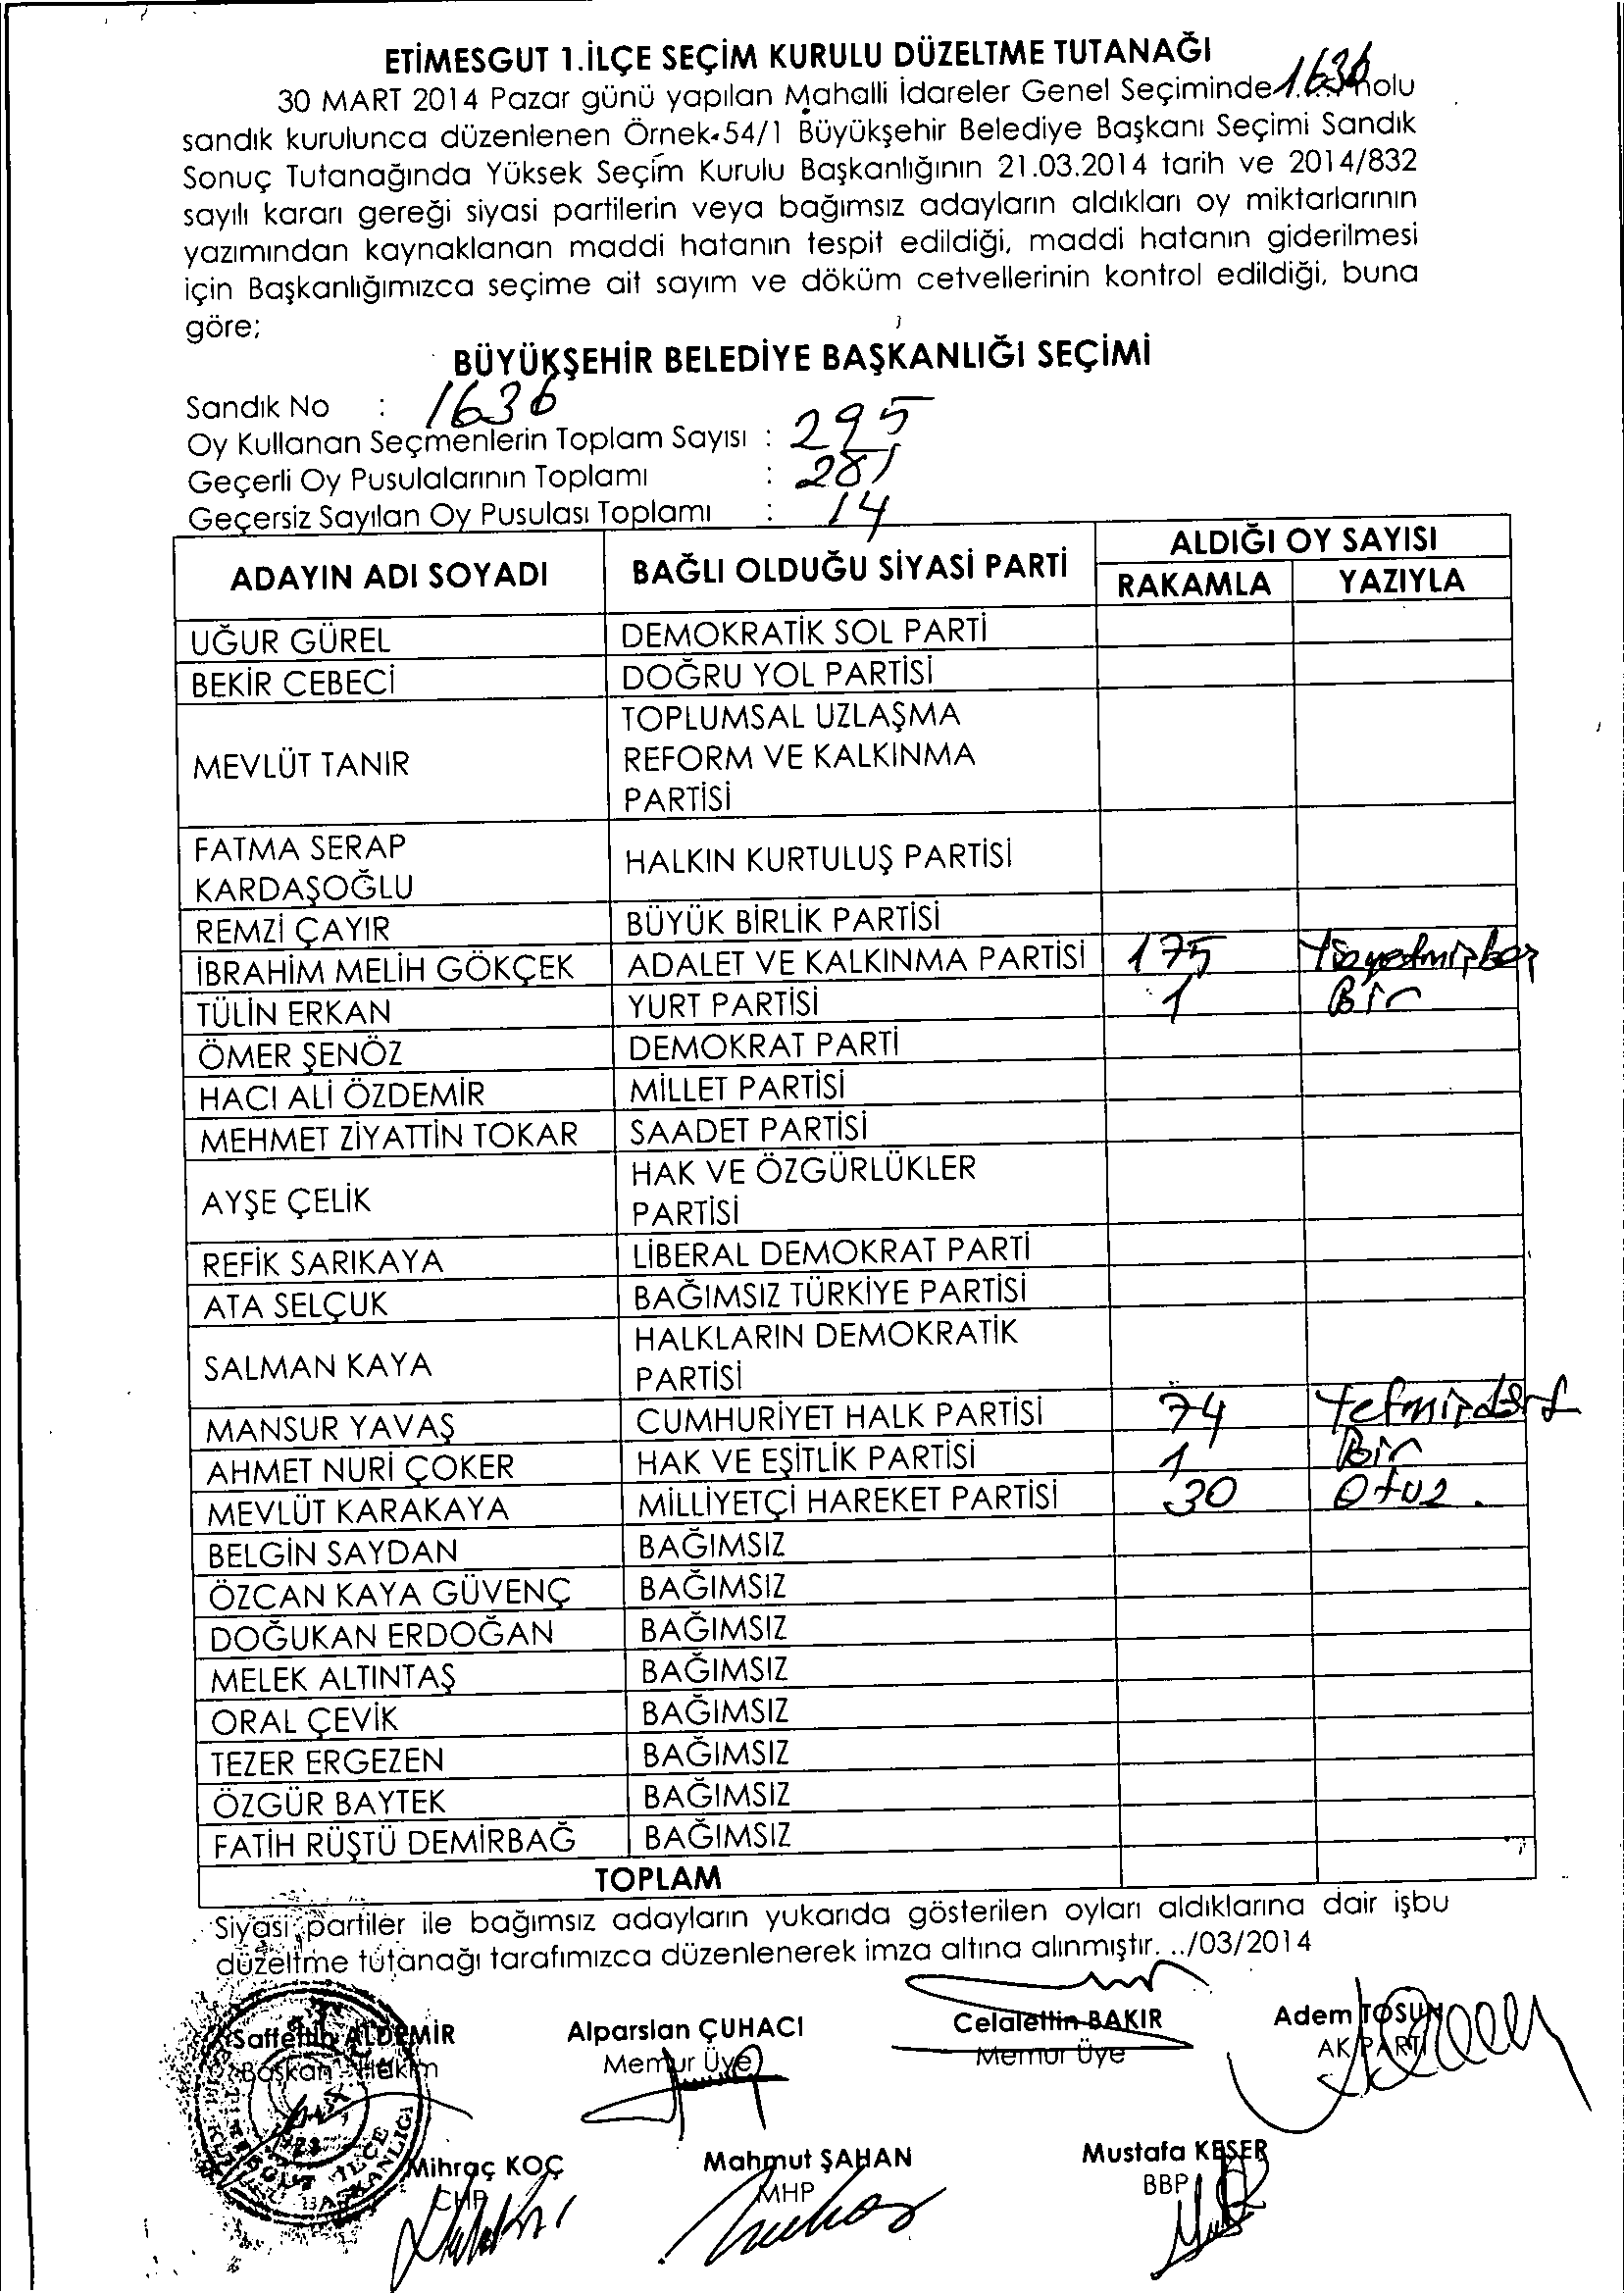 ETİMESGUT 1.İLÇE SEÇİM KURULU DÜZELTME TUTANAĞI
30 MART 2014 Pazar günü yapılan Mahalli İdareler Genel Seçiminde 1636 nolu
sandık kurulunca düzenlenen Örnek-54/1 Büyükşehir Belediye Başkanı Seçimi Sandık
Sonuç Tutanağında Yüksek Seçim Kurulu Başkanlığının 21.03.2014 tarih ve 2014/832
sayılı kararı gereği siyasi partilerin veya bağımsız adayların aldıkları oy miktarlarının
yazımından kaynaklanan maddi hatanın tespit edildiği, maddi hatanın giderilmesi
için Başkanlığımızca seçime ait sayım ve döküm cetvellerinin kontrol edildiği, buna
göre;
BÜYÜKŞEHİR BELEDİYE BAŞKANLIĞI SEÇİMİ
Sandık No : 1636
Oy Kullanan Seçmenlerin Toplam Sayısı : 295
Geçerli Oy Pusulalarının Toplamı : 281
Geçersiz Sayılan Oy Pusulası Toplamı : 14
ADAYIN ADI SOYADI BAĞLI OLDUĞU SİYASİ PARTİ ALDIĞI OY SAYISI
RAKAMLA YAZIYLA
UĞUR GÜREL DEMOKRATİK SOL PARTİ
BEKİR CEBECİ DOĞRU YOL PARTİSİ
MEVLÜT TANIR TOPLUMSAL UZLAŞMA
REFORM VE KALKINMA
PARTİSİ
FATMA SERAP
KARDAŞOĞLU HALKIN KURTULUŞ PARTİSİ
REMZİ ÇAYIR BÜYÜK BİRLİK PARTİSİ
İBRAHİM MELİH GÖKÇEK ADALET VE KALKINMA PARTİSİ 175 Yüzyetmişbeş
TÜLİN ERKAN YURT PARTİSİ 1 Bir
ÖMER ŞENÖZ DEMOKRAT PARTİ
HACI ALİ ÖZDEMİR MİLLET PARTİSİ
MEHMET ZİYATTİN TOKAR SAADET PARTİSİ
AYŞE ÇELİK HAK VE ÖZGÜRLÜKLER
PARTİSİ
REFİK SARIKAYA LİBERAL DEMOKRAT PARTİ
ATA SELÇUK BAĞIMSIZ TÜRKİYE PARTİSİ
SALMAN KAYA HALKLARIN DEMOKRATİK
PARTİSİ
MANSUR YAVAŞ CUMHURİYET HALK PARTİSİ 74 Yetmişdört
AHMET NURİ ÇOKER HAK VE EŞİTLİK PARTİSİ 1 Bir
MEVLÜT KARAKAYA MİLLİYETÇİ HAREKET PARTİSİ 30 Otuz.
BELGİN SAYDAN BAĞIMSIZ
ÖZCAN KAYA GÜVENÇ BAĞIMSIZ
DOĞUKAN ERDOĞAN BAĞIMSIZ
MELEK ALTINTAŞ BAĞIMSIZ
ORAL ÇEVİK BAĞIMSIZ
TEZER ERGEZEN BAĞIMSIZ
ÖZGÜR BAYTEK BAĞIMSIZ
FATİH RÜŞTÜ DEMİRBAĞ BAĞIMSIZ
TOPLAM
Siyasi partiler ile bağımsız adayların yukarıda gösterilen oyları aldıklarına dair işbu
düzeltme tutanağı tarafımızca düzenlenerek imza altına alınmıştır. ../03/2014
Saffettin ALDEMİR Alparslan ÇUHACI Celalettin BAKIR Adem TOSUN
Başkan - Hakim Memur Üye Memur Üye AK PARTİ
Mihraç KOÇ Mahmut ŞAHAN Mustafa KESER
CHP MHP BBP